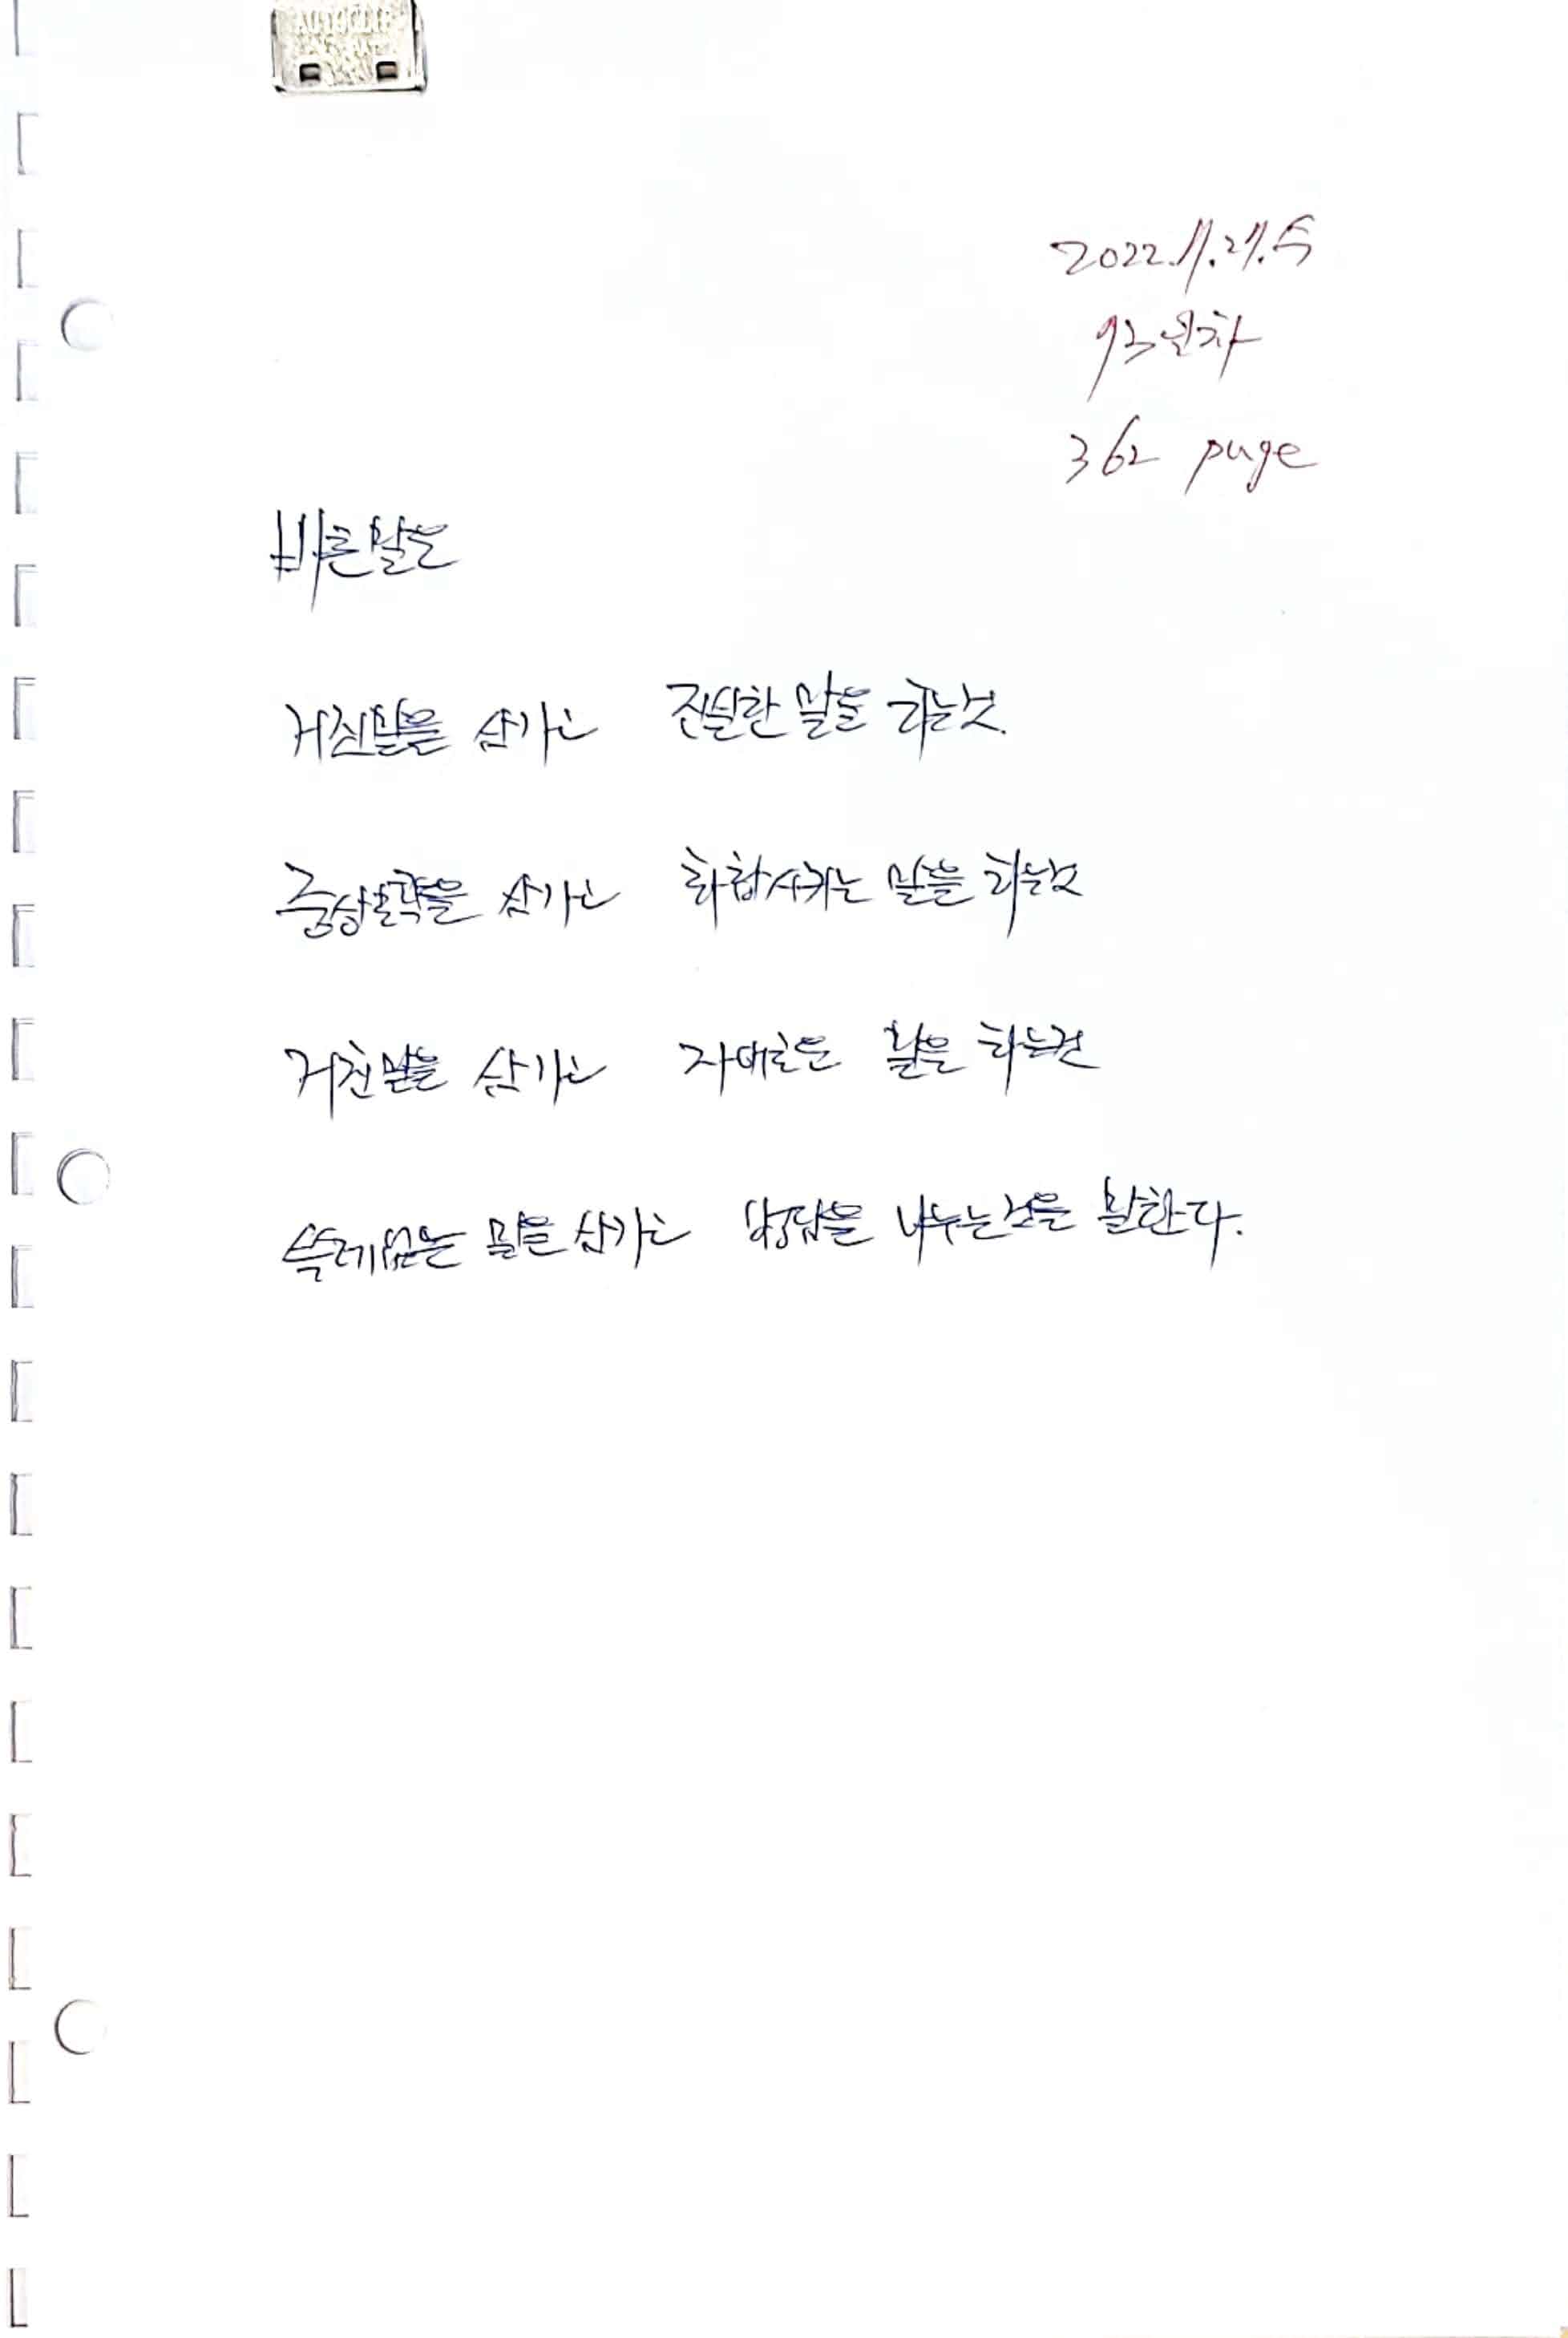 AUTOCLIP
2022.11.27.
93일차
362 page
바른말은
거짓말을 삼가고 진실한 말을 하는것.
중상모략을 삼가고 화합시키는 말을 하는것
거친말을 삼가고 자애로운 말을 하는것
쓸데없는 말을 삼가고 법담을 나누는것을 말한다.